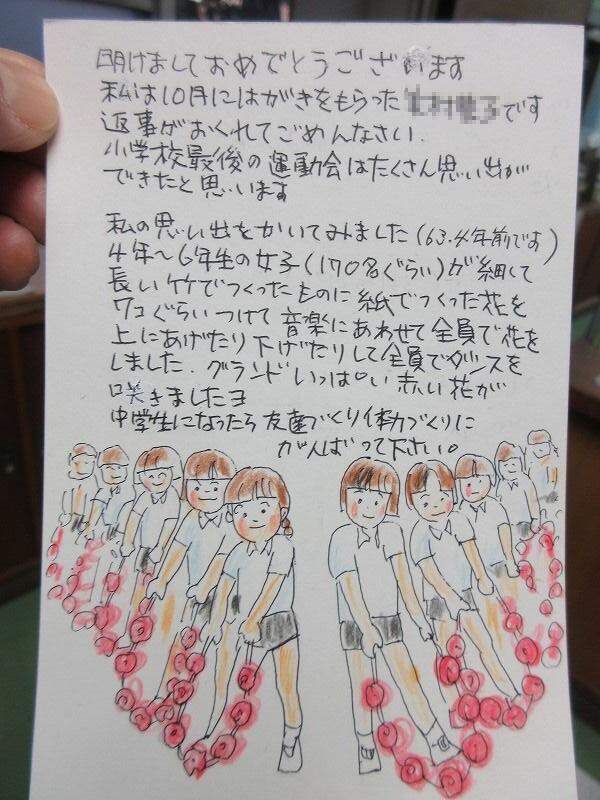 明けましておめでとうございます
私は10月にはがきをもらった です
返事がおくれてごめんなさい.
小学校最後の運動会はたくさん思い出が
できたと思います
私の思い出をかいてみました(63.4年前です)
4年〜6年生の女子(170名ぐらい)が細して
長い竹でつくったものに紙でつくった花を
7コぐらいつけて音楽にあわせて全員で花を
上にあげたり下げたりして全員でダンスを
しました.グランドいっぱい赤い花が
咲きましたヨ
中学生になったら友達づくり体力づくりに
がんばって下さい。